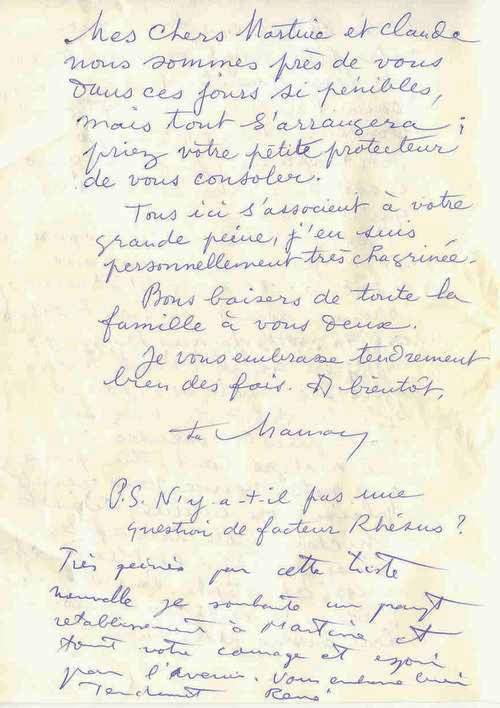 Mes chers Martine et Claude
nous sommes près de vous
dans ces jours si pénibles,
mais tout s'arrangera ;
priez votre petite protecteur
de vous consoler.
Tous ici s'associent à votre
grande peine, j'en suis
personnellement très chagrinée.
Bons baisers de toute la
famille à vous deux.
Je vous embrasse tendrement
bien des fois. A bientôt,
ta Maman
P.S. N'y a-t-il pas une
question de facteur Rhésus ?
Très peinés par cette triste
nouvelle je souhaite un prompt
retablissement à Martine et
tout votre courage et espoir
pour l'avenir. Vous embrasse bien
Tendrement René